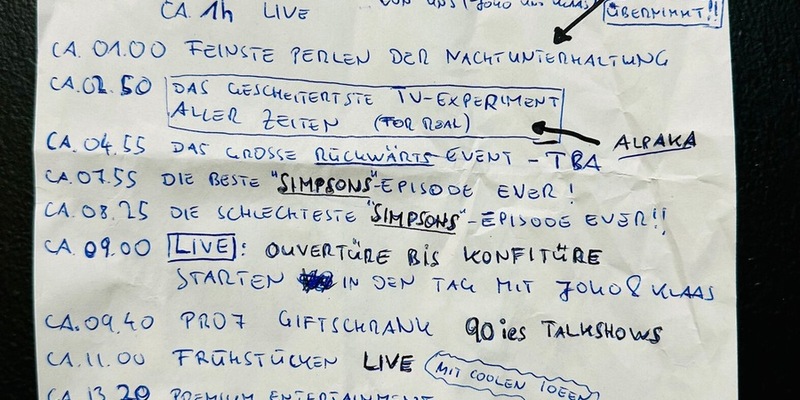 CA. 1h LIVE
VON UNS (JOKO UND KLAAS
ÜBERNIMMT!!
CA. 01.00 FEINSTE PERLEN DER NACHTUNTERHALTUNG
CA. 02.50 DAS GESCHEITERTSTE TV-EXPERIMENT
ALLER ZEITEN (FOR REAL)
ALPAKA
CA. 04.55 DAS GROSSE RÜCKWÄRTS EVENT - TBA
CA. 07.55 DIE BESTE "SIMPSONS"-EPISODE EVER!
CA. 08.25 DIE SCHLECHTESTE "SIMPSONS"-EPISODE EVER!!
CA. 09.00 LIVE: OUVERTÜRE BIS KONFITÜRE
STARTEN IN DEN TAG MIT JOKO & KLAAS
CA. 09.40 PRO7 GIFTSCHRANK 90ies TALKSHOWS
CA. 11.00 FRÜHSTÜCKEN LIVE MIT COOLEN IDEEN
CA. 13.20 PREMIUM ENTERTAINMENT